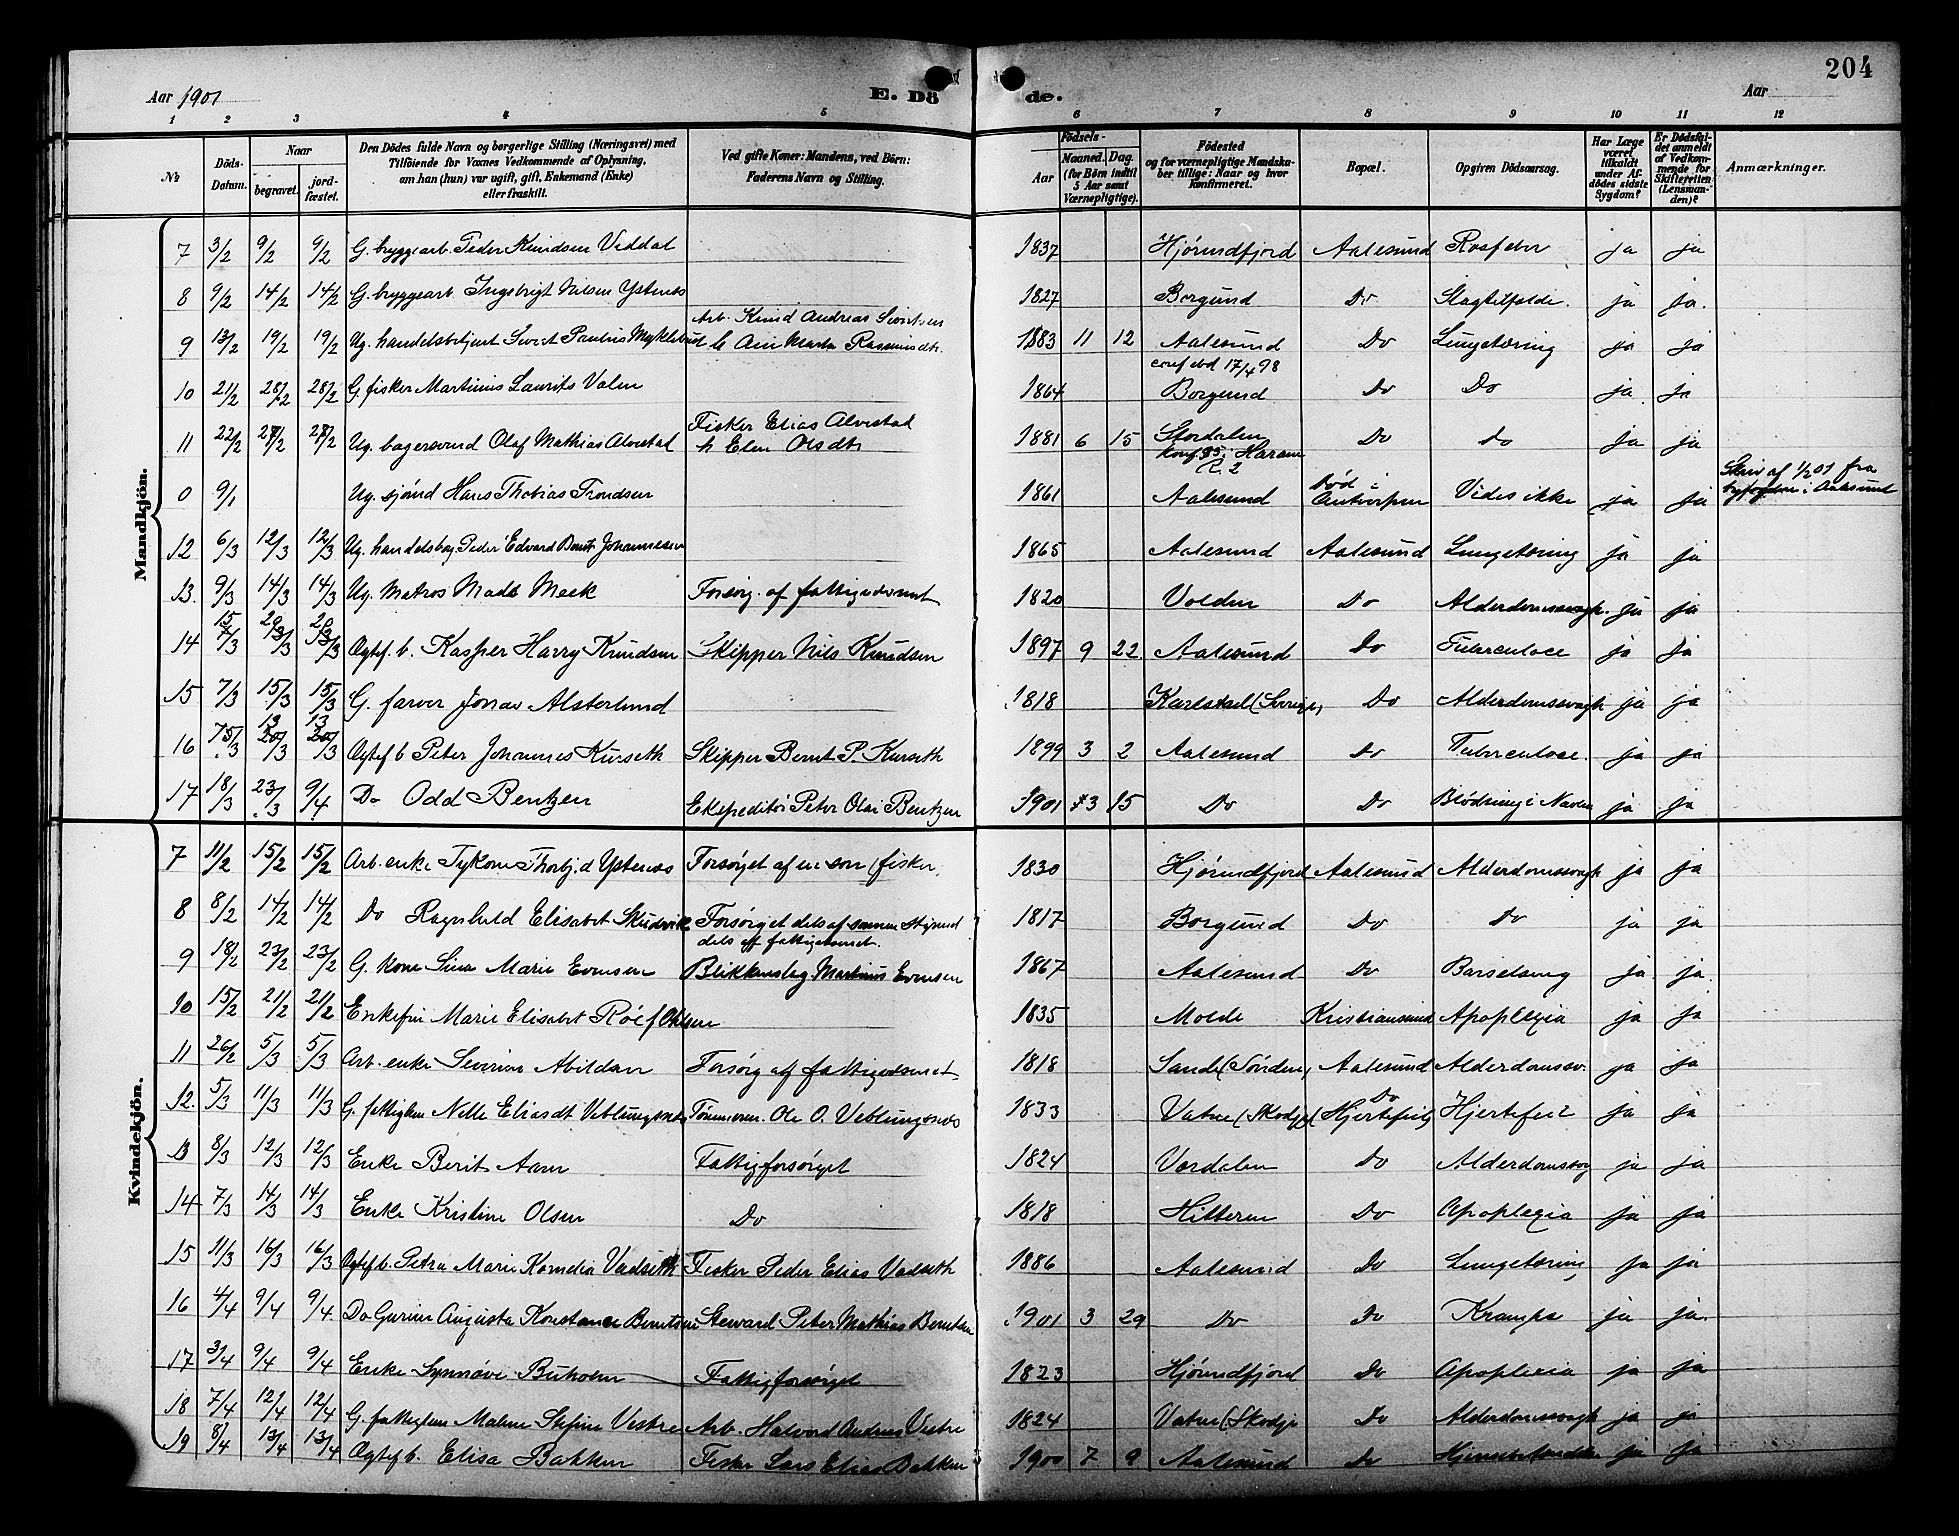 204
Aar 1901
E. Dö
de.
Aar
1 2 3 4 5 6 7 8 9 10 11 12
No
Döds-Datum.
Naar
begravet.
jord-fæstet.
Den Dödes fulde Navn og borgerlige Stilling (Næringsvei) med
Tilföiende for Voxnes Vedkommende af Oplysning,
om han (hun) var ugift, gift, Enkemand (Enke)
eller fraskilt.
Ved gifte Koner: Mandens, ved Börn:
Faderens Navn og Stilling.
Födsels-
Aar
Maaned.
Dag.
(for Börn indtil
5 Aar samt
Værnepligtige).
Födested
og for værnepligtige Mandska-
ber tillige: Naar og hvor
konfirmeret.
Bopæl.
Opgiven Dödsaarsag.
Har Læge
været
tilkaldt
under Af-
dödes sidste
Sygdom?
Er Dödsfal-
det anmeldt
af Vedkom-
mende for
Skifteretten
(Lensman-
den)?
Anmærkninger.
Mandkjön.
7 3/2 9/2 9/2 G. bryggearb. Peder Knudsen Viddal 1837 Hjørundfjord Aalesund Rosfeber ja ja
8 9/2 14/2 14/2 G. bryggearb. Ingebrigt Nilsen Ystenes 1827 Borgund Do Slagtilfælde. ja ja.
Arb. Knud Andreas Sivertsen
9 13/2 19/2 19/2 Ug. handelsbetjent Sivert Paulus Myklebust 1883 11 12 Aalesund Do Lungetæring ja ja
17/4 98
10 21/2 28/2 28/2 G. fisker Martinus Laurits Valen 1864 Borgund Do Do ja ja
Fisker Elias Alvestad
11 22/2 27/2 27/2 Ug. bagersvend Olaf Mathias Alvestad h Elen Olsdt. 1881 6 15 Stordalen Do do ja ja
konf. 95 i Haram
0 9/1 Ug. sjømd Hans Thobias Trondsen 1861 Aalesund Død i Antverpen Vides ikke ja ja Skriv af 1/2 01 fra
byfogden i Aalesund
12 6/3 12/3 12/3 Ug. handelsbog Peder Edvard Bernt Johannesen 1865 Aalesund Aalesund Lungetæring ja ja
13. 9/3 14/3 14/3 Ug. Matros Mads Meek Forsørg. af fattigvæsenet 1820 Volden Do Alderdomssvagh. ja ja
14 15/3 20/3 20/3 Ægtef. b. Kasper Harry Knudsen Skipper Nils Knudsen 1897 9 22 Aalesund Do Tuberculose ja ja
15 7/3 15/3 15/3 G. farver Jonas Alsterlund 1818 Karlstad (Sverige) Do Alderdomssvagh ja ja
16 7/3 13/3 13/3 Ægtef b Peter Johannes Kurseth Skipper Bernt P. Kurseth 1899 3 2 Aalesund Do Tuberculose. ja ja
17 18/3 23/3 9/4 Do Odd Bentzen Ekspeditør Peter Olai Bentzen 1901 3 15 Do Do Blødning i Navlen ja ja
Kvindekjön.
7 11/2 15/2 15/2 Arb. enke Thorbj.d Ystenes Forsørget af en søn (fisker) 1830 Hjørundfjord Aalesund Alderdomssvagh ja ja
8 8/2 14/2 14/2 Do Ragnhild Elisabet Skudvik Forsørget dels af sønnen
dels af fattigvæsenet. 1817 Borgund Do Do ja ja
9 18/2 23/2 23/2 G. kone Sina Marie Evensen Blikkenslag Martinus Evensen 1867 Aalesund Do Barselseng ja ja.
10 15/2 21/2 21/2 Enkefru Marie Elisabet Røe f. Ohlsen 1835 Molde Kristiansund Apoplexia ja ja
11 26/2 5/3 5/3 Arb. enke Severine Abildsen Forsørg af fattigvæsenet 1818 Sande (Søndm) Aalesund Alderdomssv. ja ja
12. 5/3 11/3 11/3 G. fattiglem Nelle Eliasdt Veblungsnes Tømmerm. Ole O. Veblungsnes 1833 Vatne (Skodje) Do (Hjertefeil) Hjertefeil ja ja
13 8/3 12/3 12/3 Enke Berit Aam Fattigforsørget 1824 Værdalen Do Alderdomssvag ja ja
14 7/3 14/3 14/3 Enke Kristine Olsen Do 1818 Hitteren Do Apoplexia ja ja
15 11/3 16/3 16/3 Ægtef b. Petra Marie Kornelia Vadseth Fisker Peder Elias Vadseth 1886 Aalesund Do Lungetæring ja ja
16 4/4 9/4 9/4 Do Gurine Augusta Konstance Berntsen Steward Peter Mathias Berntsen 1901 3 29 Do Do Krampe ja ja.
17 3/4 9/4 9/4 Enke Synnøve Buholm Fattigforsørget 1823 Hjørundfjord Do Apoplexia ja ja
18 7/4 12/4 12/4 G. fattiglem Malene Vestre Arb. Halvord Andreas Vestre 1824 Vatne (Skodje Do Alderdomssvagh ja ja
19 8/4 13/4 13/4 Ægtef b. Elisa Bakken Fisker Lars Elias Bakken 1900 7 9 Aalesund Do ja ja